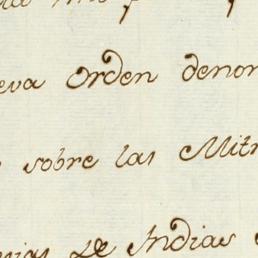 eva Orden denom
sobre las Mitr
nias de Indias